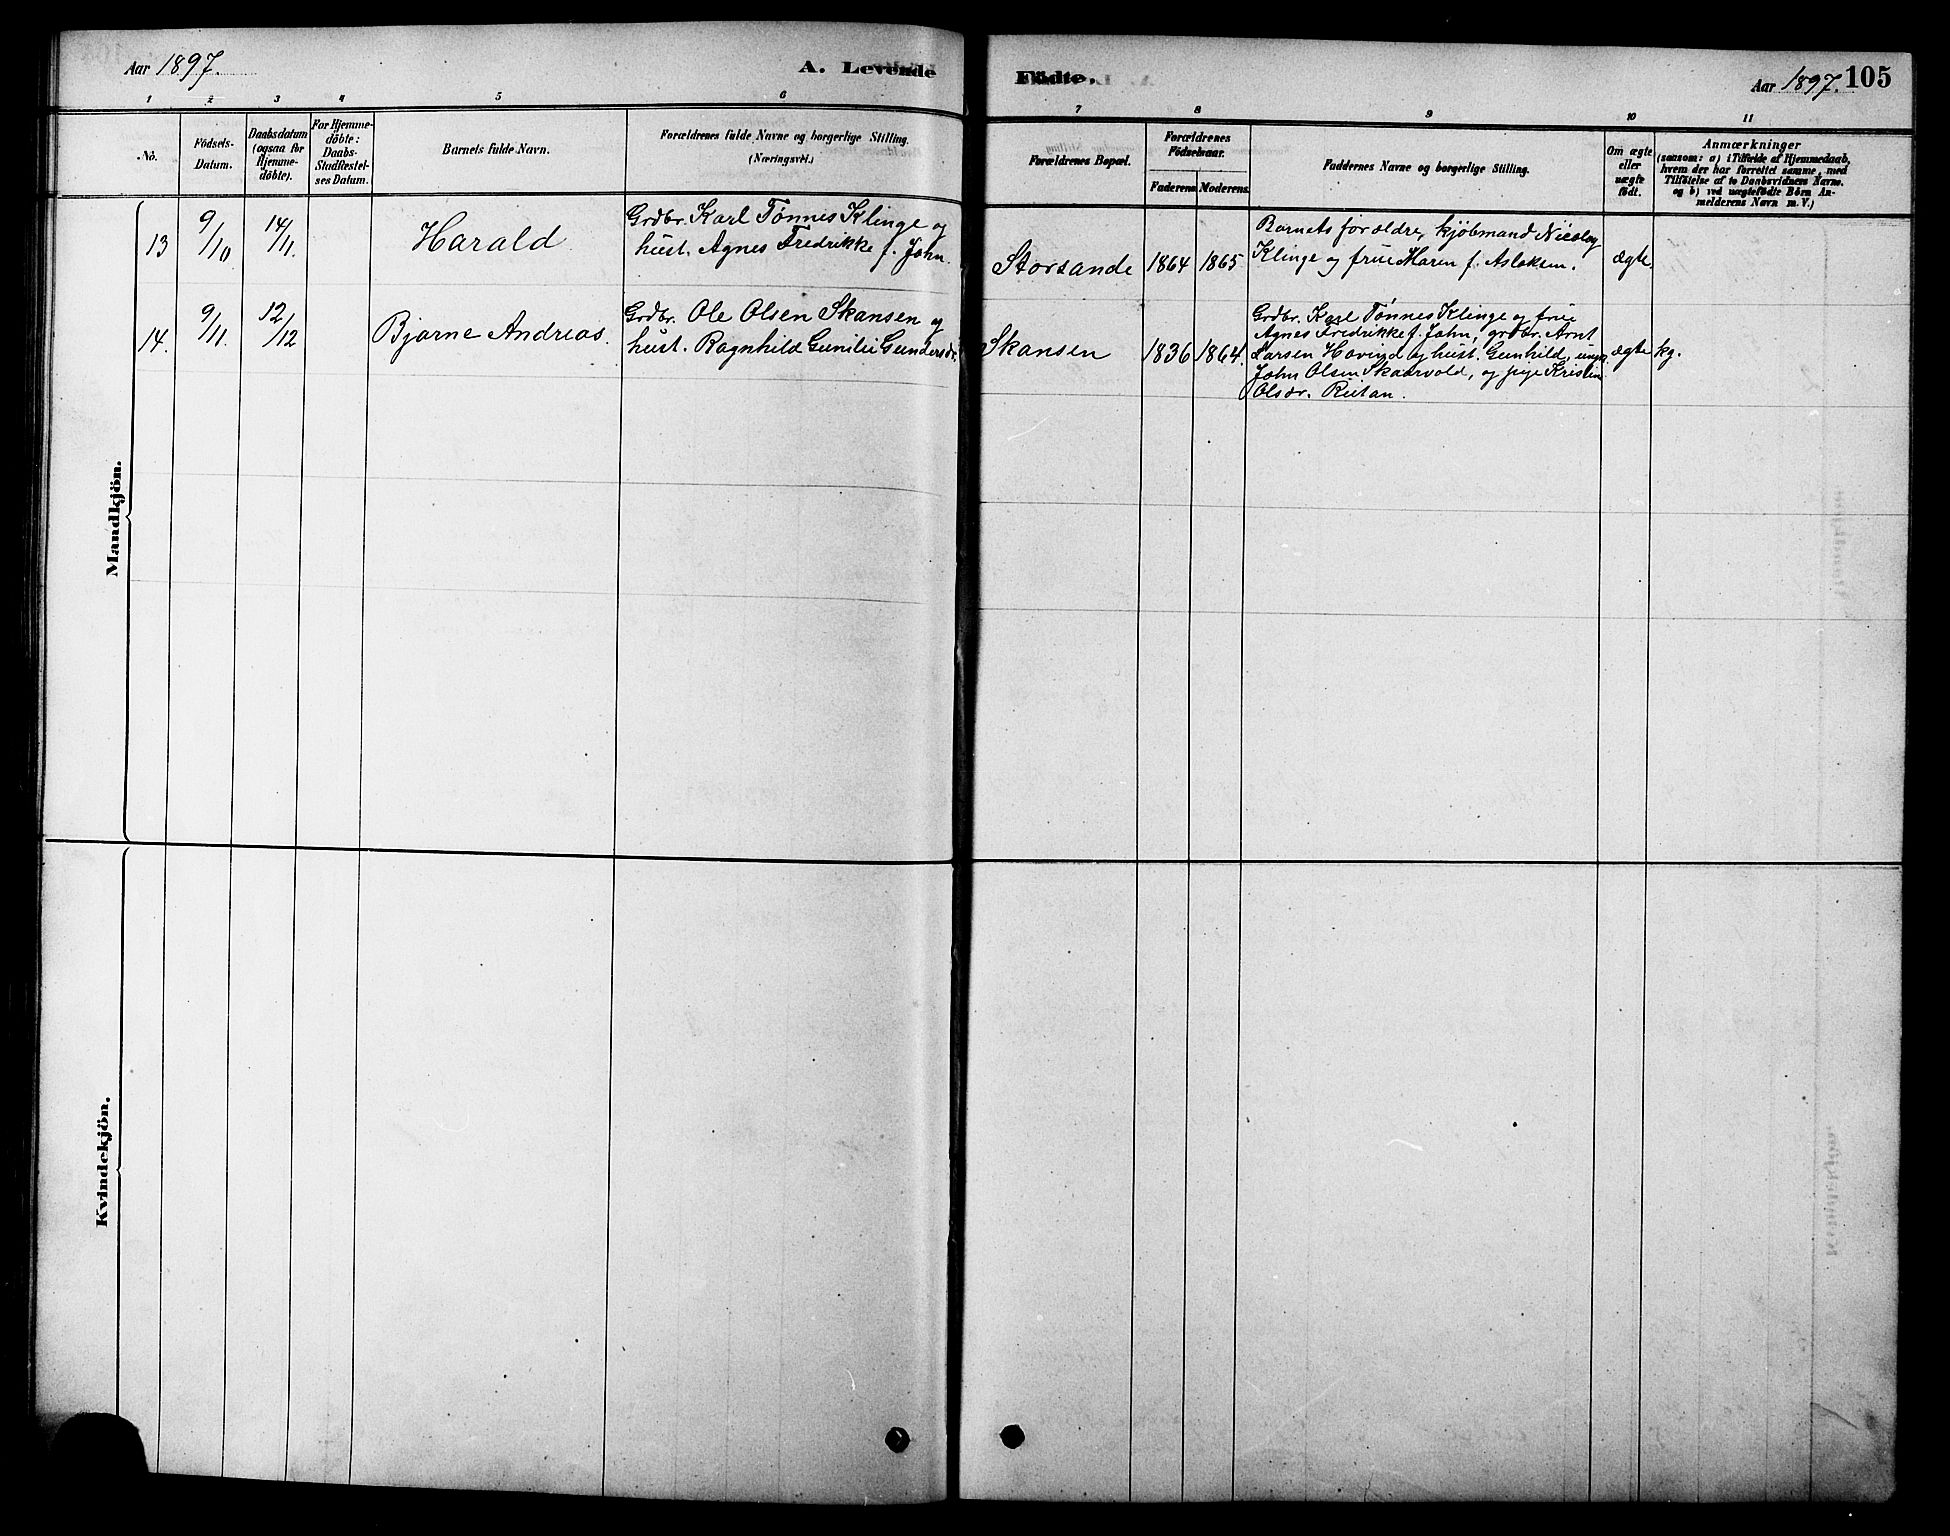 Aar 1897.
A. Levende
Födte.
Aar 1897. 105
1 2 3 4 5 6 7 8 9 10 11
No.
Födsels-
Datum.
Daabsdatum
(ogsaa for
Hjemme-
döbte).
For Hjemme-
döbte:
Daabs-
Stadfæstel-
ses Datum.
Barnets fulde Navn.
Forældrenes fulde Navne og borgerlige Stilling.
(Næringsvei.)
Forældrenes Bopæl.
Forældrenes
Födselsaar.
Faderens. Moderens.
Faddernes Navne og borgerlige Stilling.
Om ægte
eller
uægte
födt.
Anmærkninger
(saasom: a) i Tilfælde af Hjemmedaab,
hvem der har forrettet samme, med
Tilföielse af to Daabsvidners Navne.
og b) ved uægtefödte Börn An-
melderens Navn m. V.)
Mandkjön.
13 9/10 14/11. Harald
Grdbr. Karl Tønnes Klinge og
hust. Agnes Fredrikke f. Jahn.
Storsande 1864 1865
Barnets forældre, kjöbmand Nicolay
Klinge og frue Maren f. Aslaksen.
ægte.
14. 9/11. 12/12 Bjarne Andreas.
Grdbr. Ole Olsen Skansen og
hust. Ragnhild Gunilie Gundersdr.
Skansen 1836 1864.
Grdbr. Karl Tønnes Klinge og frue
Agnes Fredrikke f. Jahn, grdbr. Arnt
Larsen Hovind og hust. Gunhild, ungk.
John Olsen Skaarvold, og pige Kristin
Olsdr. Ruitan.
ægte kg.
Kvindekjön.